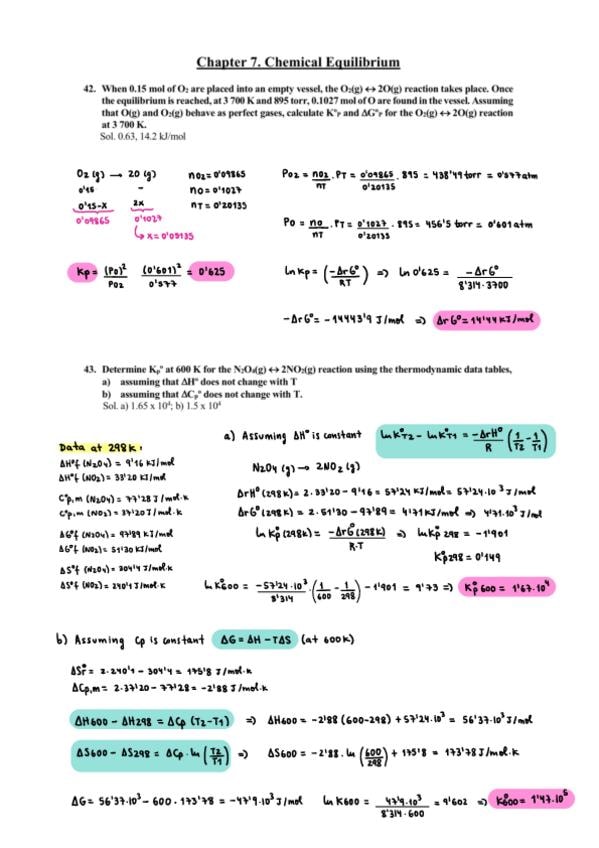 Chapter 7. Chemical Equilibrium
42. When 0.15 mol of O₂ are placed into an empty vessel, the O₂(g) ↔ 2O(g) reaction takes place. Once
the equilibrium is reached, at 3 700 K and 895 torr, 0.1027 mol of O are found in the vessel. Assuming
that O(g) and O₂(g) behave as perfect gases, calculate K°ₚ and ΔG°ₚ for the O₂(g) ↔ 2O(g) reaction
at 3 700 K.
Sol. 0.63, 14.2 kJ/mol
O₂ (g) → 2O (g)
0'15 -
0'15-x 2x
0'09865 0'1027
↳ x = 0'05135
nO₂ = 0'09865
nO = 0'1027
nT = 0'20135
PO₂ = nO₂/nT · PT = 0'09865/0'20135 · 895 = 438'49 torr = 0'577 atm
PO = nO/nT · PT = 0'1027/0'20135 · 895 = 456'5 torr = 0'601 atm
Kp = (PO)²/PO₂ = (0'601)²/0'577 = 0'625
ln Kp = (-ΔrG°/RT) ⇒ ln 0'625 = -ΔrG°/8'314·3700
-ΔrG° = -14443'9 J/mol ⇒ ΔrG° = 14'44 KJ/mol
43. Determine Kₚ° at 600 K for the N₂O₄(g) ↔ 2NO₂(g) reaction using the thermodynamic data tables,
a) assuming that ΔH° does not change with T
b) assuming that ΔCₚ° does not change with T.
Sol. a) 1.65 x 10⁴; b) 1.5 x 10⁴
Data at 298K:
ΔH°f (N₂O₄) = 9'16 KJ/mol
ΔH°f (NO₂) = 33'20 KJ/mol
C°p,m (N₂O₄) = 77'28 J/mol·K
C°p,m (NO₂) = 37'20 J/mol·K
ΔG°f (N₂O₄) = 97'89 KJ/mol
ΔG°f (NO₂) = 51'30 KJ/mol
ΔS°f (N₂O₄) = 304'4 J/mol·K
ΔS°f (NO₂) = 240'1 J/mol·K
a) Assuming ΔH° is constant ln K°T2 - ln K°T1 = -ΔrH°/R (1/T2 - 1/T1)
N₂O₄ (g) → 2NO₂ (g)
ΔrH° (298K) = 2·33'20 - 9'16 = 57'24 KJ/mol = 57'24·10³ J/mol
ΔrG° (298K) = 2·51'30 - 97'89 = 4'71 KJ/mol ⇒ 4'71·10³ J/mol
ln K°p (298K) = -ΔrG° (298K)/R·T ⇒ ln K°p 298 = -1'901
K°p 298 = 0'149
ln K°600 = -57'24·10³/8'314 · (1/600 - 1/298) - 1'901 = 9'73 ⇒ K°p 600 = 1'67·10⁴
b) Assuming Cp is constant ΔG = ΔH - TΔS (at 600K)
ΔSr° = 2·240'1 - 304'4 = 175'8 J/mol·K
ΔCp,m = 2·37'20 - 77'28 = -2'88 J/mol·K
ΔH600 - ΔH298 = ΔCp (T2-T1) ⇒ ΔH600 = -2'88 (600-298) + 57'24·10³ = 56'37·10³ J/mol
ΔS600 - ΔS298 = ΔCp · ln (T2/T1) ⇒ ΔS600 = -2'88 · ln (600/298) + 175'8 = 173'78 J/mol·K
ΔG = 56'37·10³ - 600 · 173'78 = -47'9·10³ J/mol ln K600 = 47'9·10³/8'314·600 = 9'602 ⇒ K°600 = 1'47·10⁵